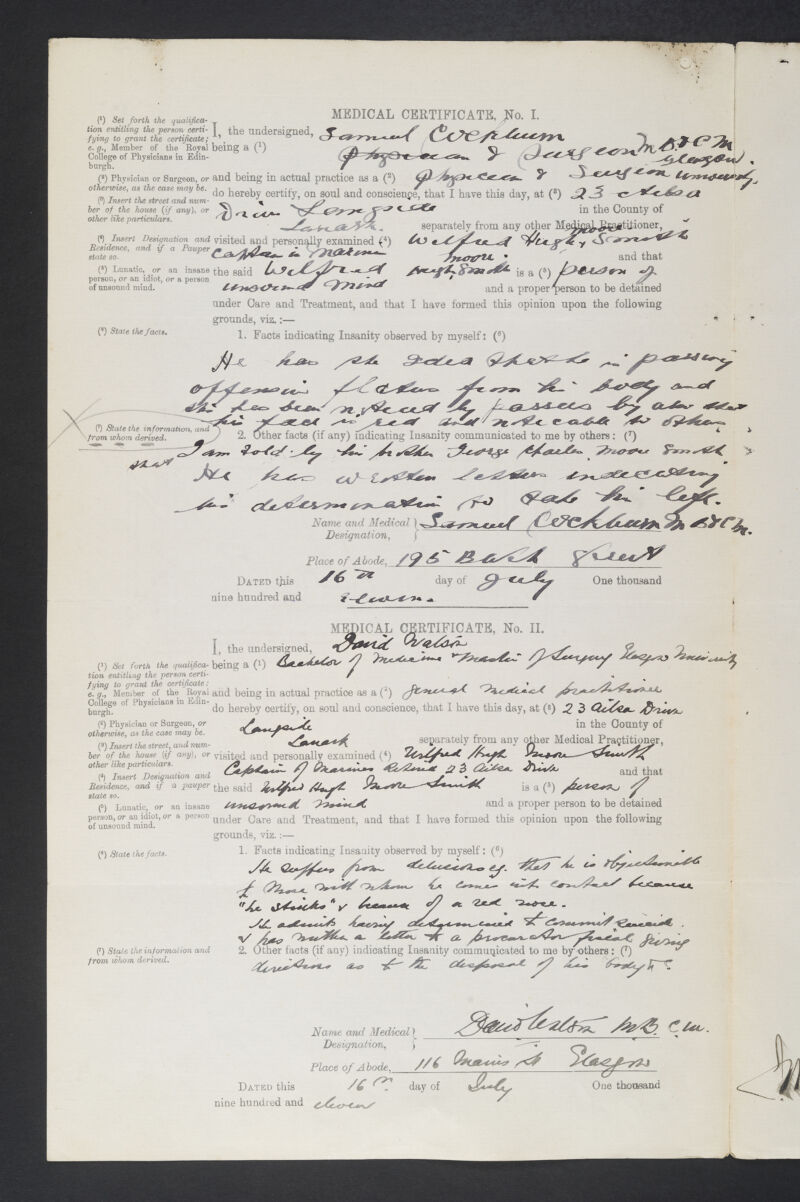 MEDICAL CERTIFICATE, No. I.
(¹) Set forth the qualifica-
tion entitling the person certi-
fying to grant the certificate;
e.g., Member of the Royal
College of Physicians in Edin-
burgh.
(²) Physician or Surgeon, or
otherwise, as the case may be.
(³) Insert the street and num-
ber of the house (if any), or
other like particulars.
(⁴) Insert Designation and
Residence, and if a Pauper
state so.
(⁵) Lunatic, or an insane
person, or an idiot, or a person
of unsound mind.
(⁶) State the facts.
(⁷) State the information, and
from whom derived.
I, the undersigned, Samuel Cockburn
being a (¹) Physician & Surgeon M B & C M Glasgow
and being in actual practice as a (²) Physician & Surgeon University.
do hereby certify, on soul and conscience, that I have this day, at (³) 23 Ailsa
Drive Langside in the County of
Lanark. separately from any other Medical Practitioner,
visited and personally examined (⁴) Wilfred Hugh Moore Smith
Captain in Marines and that
the said Wilfred Hugh Moore Smith is a (⁵) person of
unsound mind and a proper person to be detained
under Care and Treatment, and that I have formed this opinion upon the following
grounds, viz.:—
1. Facts indicating Insanity observed by myself: (⁶)
He has the idea that he is passing
offensive flatus from his body and
this has been noticed by passers by also that
his face is red and noticeable to others
2. Other facts (if any) indicating Insanity communicated to me by others: (⁷)
I am told by his brother George Charles Moore Smith
that He has written letters indicating
his determination to take his life.
Name and Medical Designation, } Samuel Cockburn M B & C M.
Place of Abode, 195 Bath Street
DATED this 16th day of July One thousand
nine hundred and eleven.
MEDICAL CERTIFICATE, No. II.
(¹) Set forth the qualifica-
tion entitling the person certi-
fying to grant the certificate:
e.g., Member of the Royal
College of Physicians in Edin-
burgh.
(²) Physician or Surgeon, or
otherwise, as the case may be.
(³) Insert the street, and num-
ber of the house (if any), or
other like particulars.
(⁴) Insert Designation and
Residence, and if a pauper
state so.
(⁵) Lunatic, or an insane
person, or an idiot, or a person
of unsound mind.
(⁶) State the facts.
(⁷) State the information and
from whom derived.
I, the undersigned, David Watson
being a (¹) Bachelor of Medicine & Master of Surgery Glasgow University
and being in actual practice as a (²) general medical practitioner
do hereby certify, on soul and conscience, that I have this day, at (³) 23 Ailsa Drive
Langside in the County of
Lanark separately from any other Medical Practitioner,
visited and personally examined (⁴) Wilfred Hugh Moore Smith
Captain of Marines Retired 23 Ailsa Drive and that
the said Wilfred Hugh Moore Smith is a (⁵) person of
unsound mind and a proper person to be detained
under Care and Treatment, and that I have formed this opinion upon the following
grounds, viz.:—
1. Facts indicating Insanity observed by myself: (⁶)
He suffers from delusions eg. that he is objectionable
to those with whom he comes into contact because
"he stinks" & because of a red nose.
He admits having determined to commit suicide.
& has written a letter to a procurator fiscal giving
2. Other facts (if any) indicating Insanity communicated to me by others: (⁷)
directions as to the disposal of his body &c.
Name and Medical Designation, } David Watson M.B. C.M.
Place of Abode, 116 St Glasgow
DATED this 16th day of July One thousand
nine hundred and eleven